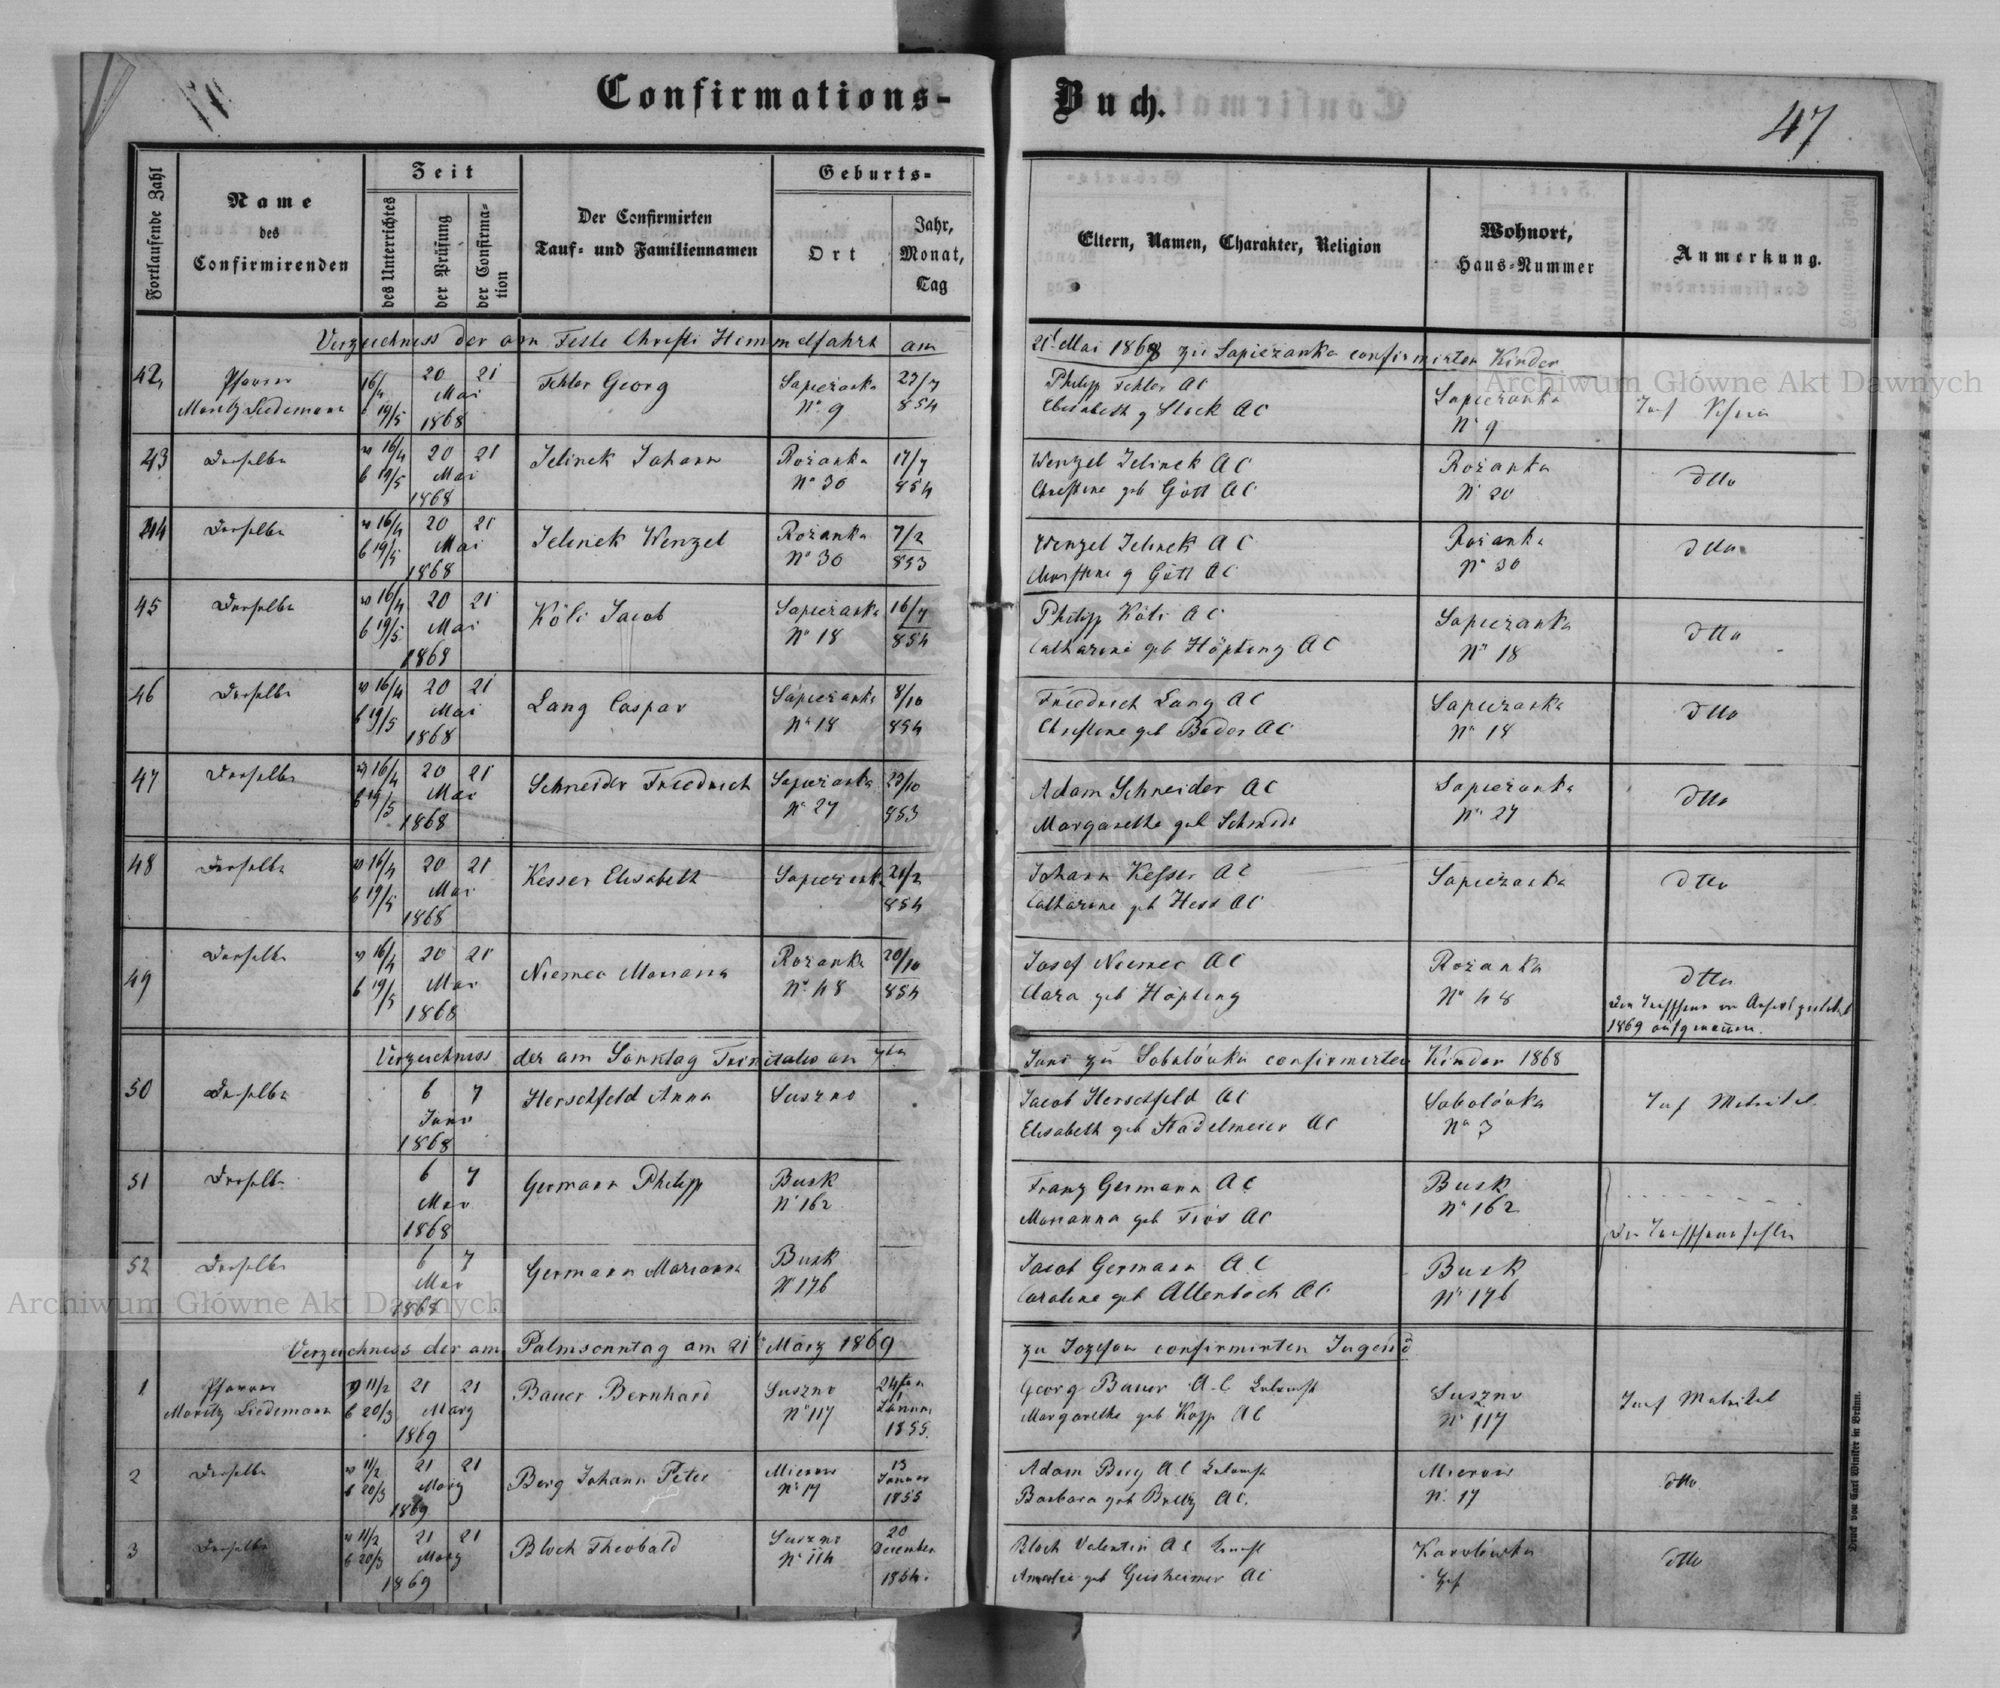 Confirmations-Buch.
47
Fortlaufende Zahl
Name
des
Confirmirenden
Zeit
des Unterrichtes
der Prüfung
der Confirma-
tion
Der Confirmirten
Tauf- und Familiennamen
Geburts-
Ort
Jahr,
Monat,
Tag
Eltern, Namen, Charakter, Religion
Wohnort,
Haus-Nummer
Anmerkung.
Verzeichniss der am Feste Christi Himmelfahrt am 21t Mai 1868 zu Sapiezanka confirmirten Kinder
42, Pfarrer 16/4 20 21 Fehler Georg Sapiezanka 23/7 Philipp Fehler AC Sapiezanka
Moritz Liedemann b 19/5 Mai 1868 No 9 854 Elisabeth g Stock AC No 9
43 Derselbe v 16/4 20 21 Jelinek Johann Rożanka 17/7 Wenzel Jelinek AC Rożanka dtto
b 19/5 Mai 1868 No 30 854 Christine geb Gött AC No 20
44 Derselbe v 16/4 20 21 Jelinek Wenzel Rożanka 7/2 Wenzel Jelinek AC Rożanka dtto
b 19/5 Mai 1868 No 30 853 Christine g Gött AC No 30
45 Derselbe v 16/4 20 21 Köli Jacob Sapiezanka 16/7 Philipp Köli AC Sapiezanka dtto
b 19/5 Mai 1868 No 18 854 Catharine geb Höpting AC No 18
46 Derselbe v 16/4 20 21 Lang Caspar Sapiezanka 8/10 Friedrich Lang AC Sapiezanka dtto
b 19/5 Mai 1868 No 18 854 Christine geb Bader AC No 18
47 Derselbe v 16/4 20 21 Schneider Friedrich Sapiezanka 23/10 Adam Schneider AC Sapiezanka dtto
b 19/5 Mai 1868 No 27 853 Margarethe geb Schmidt No 27
48 Derselbe v 16/4 20 21 Kesser Elisabeth Sapiezanka 21/2 Johann Kesser AC Sapiezanka dtto
b 19/5 Mai 1868 854 Catharine geb Hess AC
49 Derselbe v 16/4 20 21 Niemec Marianna Rożanka 20/10 Josef Niemec AC Rożanka dtto
b 19/5 Mai 1868 No 48 854 Clara geb Höpting No 48
1869
Verzeichniss der am Sonntag Trinitatis an 7ten Juni zu Sobolówka confirmirten Kinder 1868
50 Derselbe 6 7 Herschfeld Anna Suszno Jacob Herschfeld AC Sobolówka Matrikel
Juni 1868 Elisabeth geb Stadelmeier AC No 3
51 Derselbe 6 7 Germann Philipp Busk Franz Germann AC Busk
Mai 1868 No 162 Marianna geb AC No 162
52 Derselbe 6 7 Germann Marianna Busk Jacob Germann AC Busk
Mai 1868 No 176 Caroline geb Allenbach AC No 176
Verzeichniss der am Palmsonntag am 21t März 1869 zu Jozefow confirmirten Jugend
1 Pfarrer v 11/2 21 21 Bauer Bernhard Suszno 24ten Georg Bauer A.C. Suszno Matrikel
Moritz Liedemann b 20/3 März 1869 No 117 Januar 1855. Margarethe geb Kopp AC No 117
2 Derselbe v 11/2 21 21 Berg Johann Peter Mierow 13 Adam Berg AC Mierow dtto
b 20/3 März 1869 No 17 Januar 1855 Barbara geb AC. No. 17
3 Derselbe v 11/2 21 21 Bloch Theobald Suszno 20 Bloch Valentin AC Karolówka dtto
b 20/3 März 1869 No 114 December 1854. Amalie geb Geisheimer AC
Druck von Carl Winiker in Brünn.
Archiwum Główne Akt Dawnych
Archiwum Główne Akt Dawnych